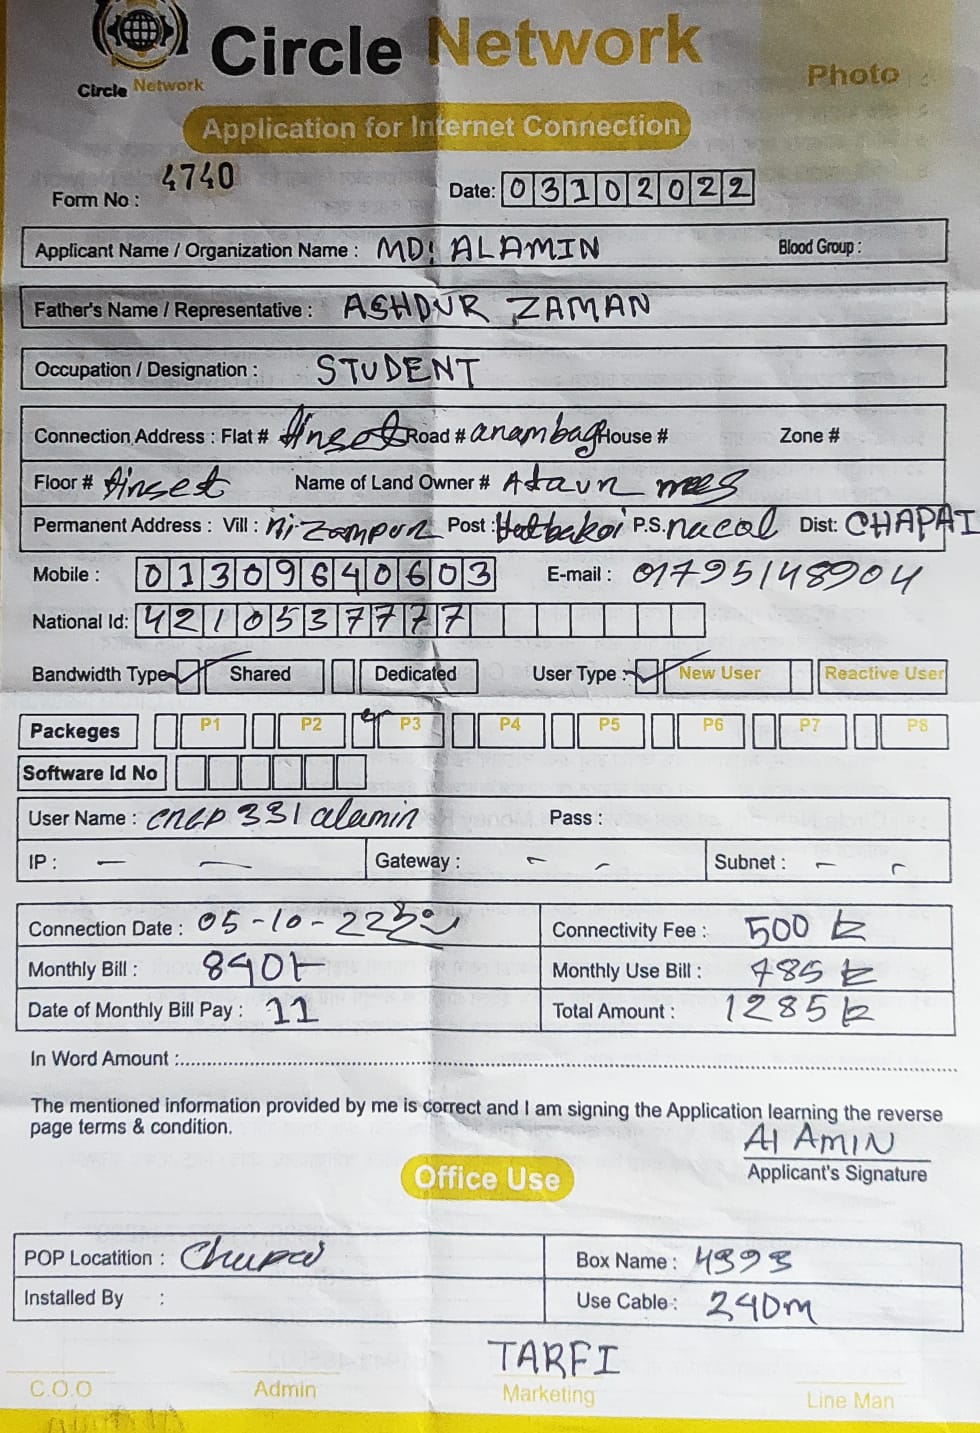 Circle Network
Circle Network
Photo
Application for Internet Connection
Form No : 4740
Date: 03102022
Applicant Name / Organization Name : MD: ALAMIN Blood Group :
Father's Name / Representative : ASHDUR ZAMAN
Occupation / Designation : STUDENT
Connection Address : Flat # tinset Road # arambag House # Zone #
Floor # tinset Name of Land Owner # Ataur
Permanent Address : Vill : nizampur Post : P.S. nacol Dist: CHAPAI
Mobile : 01309640603 E-mail : 01795148904
National Id: 4210537777
Bandwidth Type Shared Dedicated User Type : New User Reactive User
Packeges P1 P2 P3 P4 P5 P6 P7 P8
Software Id No
User Name : alamin Pass :
IP : — — Gateway : - - Subnet : - -
Connection Date : 05-10-22 Connectivity Fee : 500
Monthly Bill : 840 Monthly Use Bill : 785
Date of Monthly Bill Pay : 11 Total Amount : 1285
In Word Amount :
The mentioned information provided by me is correct and I am signing the Application learning the reverse
page terms & condition.
Al AMIN
Applicant's Signature
Office Use
POP Locatition : Chapai Box Name : 4393
Installed By : Use Cable : 240m
TARFI
C.O.O Admin Marketing Line Man